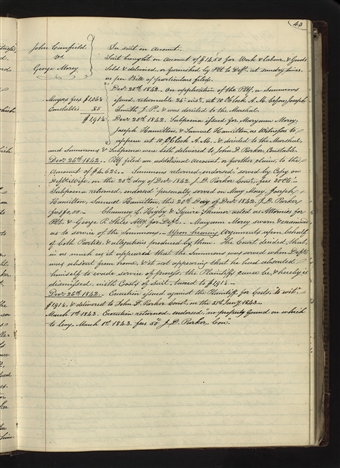 43
John Camfield
vs
George Morey
In suit on Account.
Suit brought on Account of $14,50 for Work & Labour, & Goods
Sold & delivered, or furnished, by Plff to Deft. at sundry times
as per Bill of particulars filed.
Decr 20th 1842. On application of the Plff, a Summons
issued, returnable 26th inst. at 10 O'clock A.M. before Joseph
Smith J.P. & was directed to the Marshal.
Decr 20th 1842. Subpoena issued for Maryann Morey,
Joseph Hamilton, & Samuel Hamilton as Witnesses to
appear at 10 O'clock A.M. & directed to the Marshal,
and Summons & Subpoena was both delivered to John D. Parker Constable.
Decr 26th 1842. Plff filed an additional account or further claim to the
Amount of Summons returned endorsed, served by Copy on
the 20th day of Decr 1842. J.D. Parker Const. fees
Subpoena returned, endorsed personally served on Mary Morey, Joseph
Hamilton, Samuel Hamilton, the 20th day of Decr 1842. J.D. Parker
fees Chauncey L. Higby & as Attornies for
Plff. & George P. Stiles Atty for Deft. Maryann Morey sworn & examined
as to service of the Summons. Upon hearing Arguments upon behalf
of both Parties, & allegations produced by them. The Court decided that,
in as much as it appeared that the Summons was served when Deft
was absent from home, & it not appearing that he had absented
himself to evade service of process, the Plaintiffs cause be, & hereby is
dismissed, with Costs of suit, taxed to $1,91¼
Decr 26th 1842. Execution issued against the Plaintiff for Costs, to wit
$1,91¼ & delivered to John D. Parker Const. on the 21st Jany 1843.
March 1st 1843. Execution returned, endorsed, "no property found on which
to levy. March 1st 1843. fees 50c J.D. Parker Con."
Mayors fees
Constables
$1,91¼